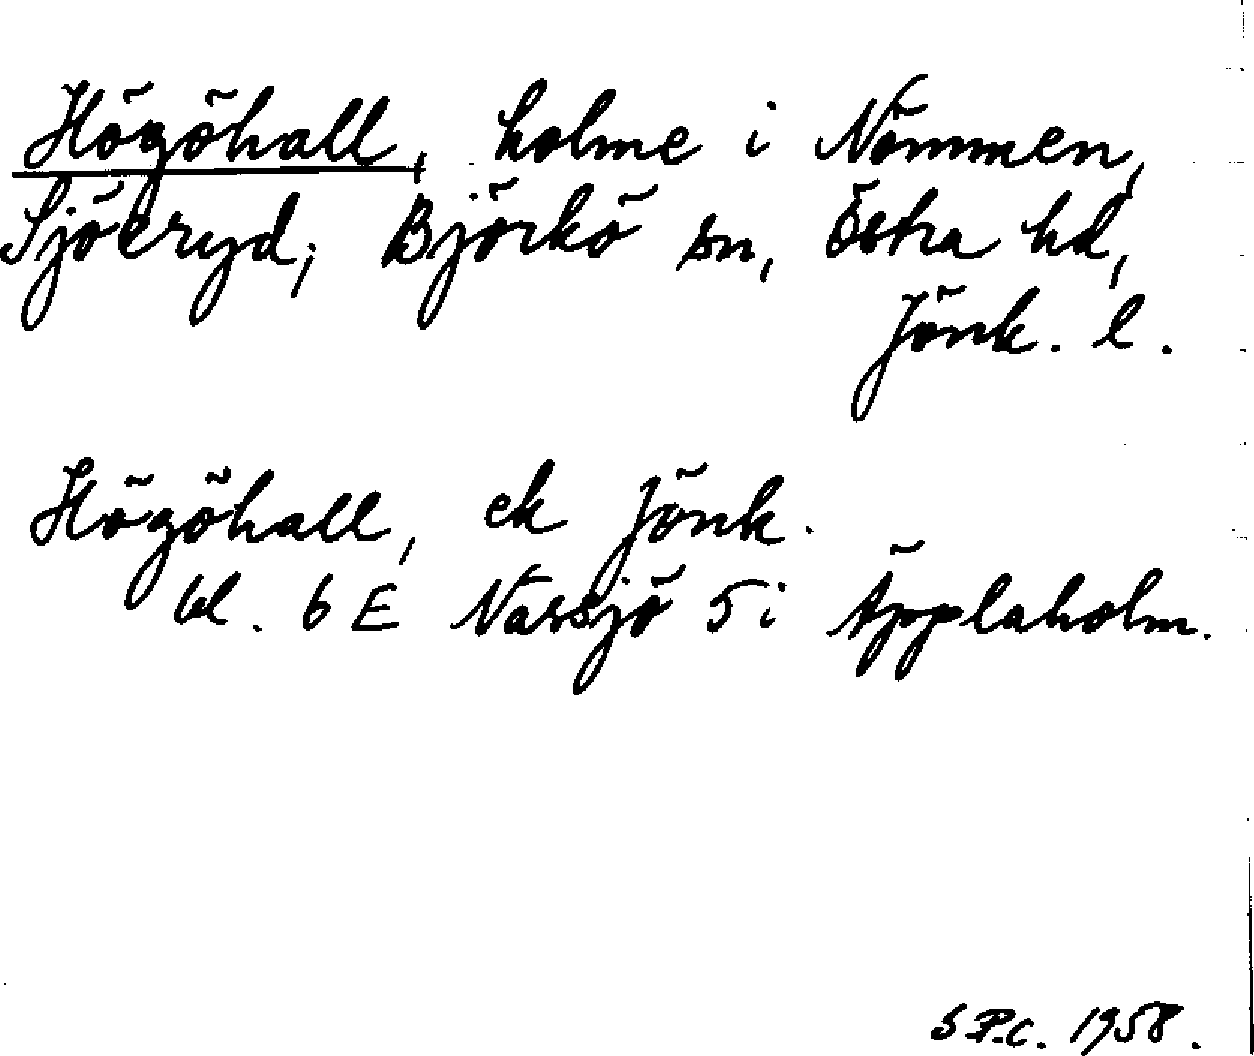 Högöhall, holme i Nömmen,
Sjöeryd, Björkö sn, Östra hd,
Jönk. l.
Högöhall, ek Jönk.
bl. 6 E Nässjö 5 i Äpplaholm.
S.P.C. 1958.